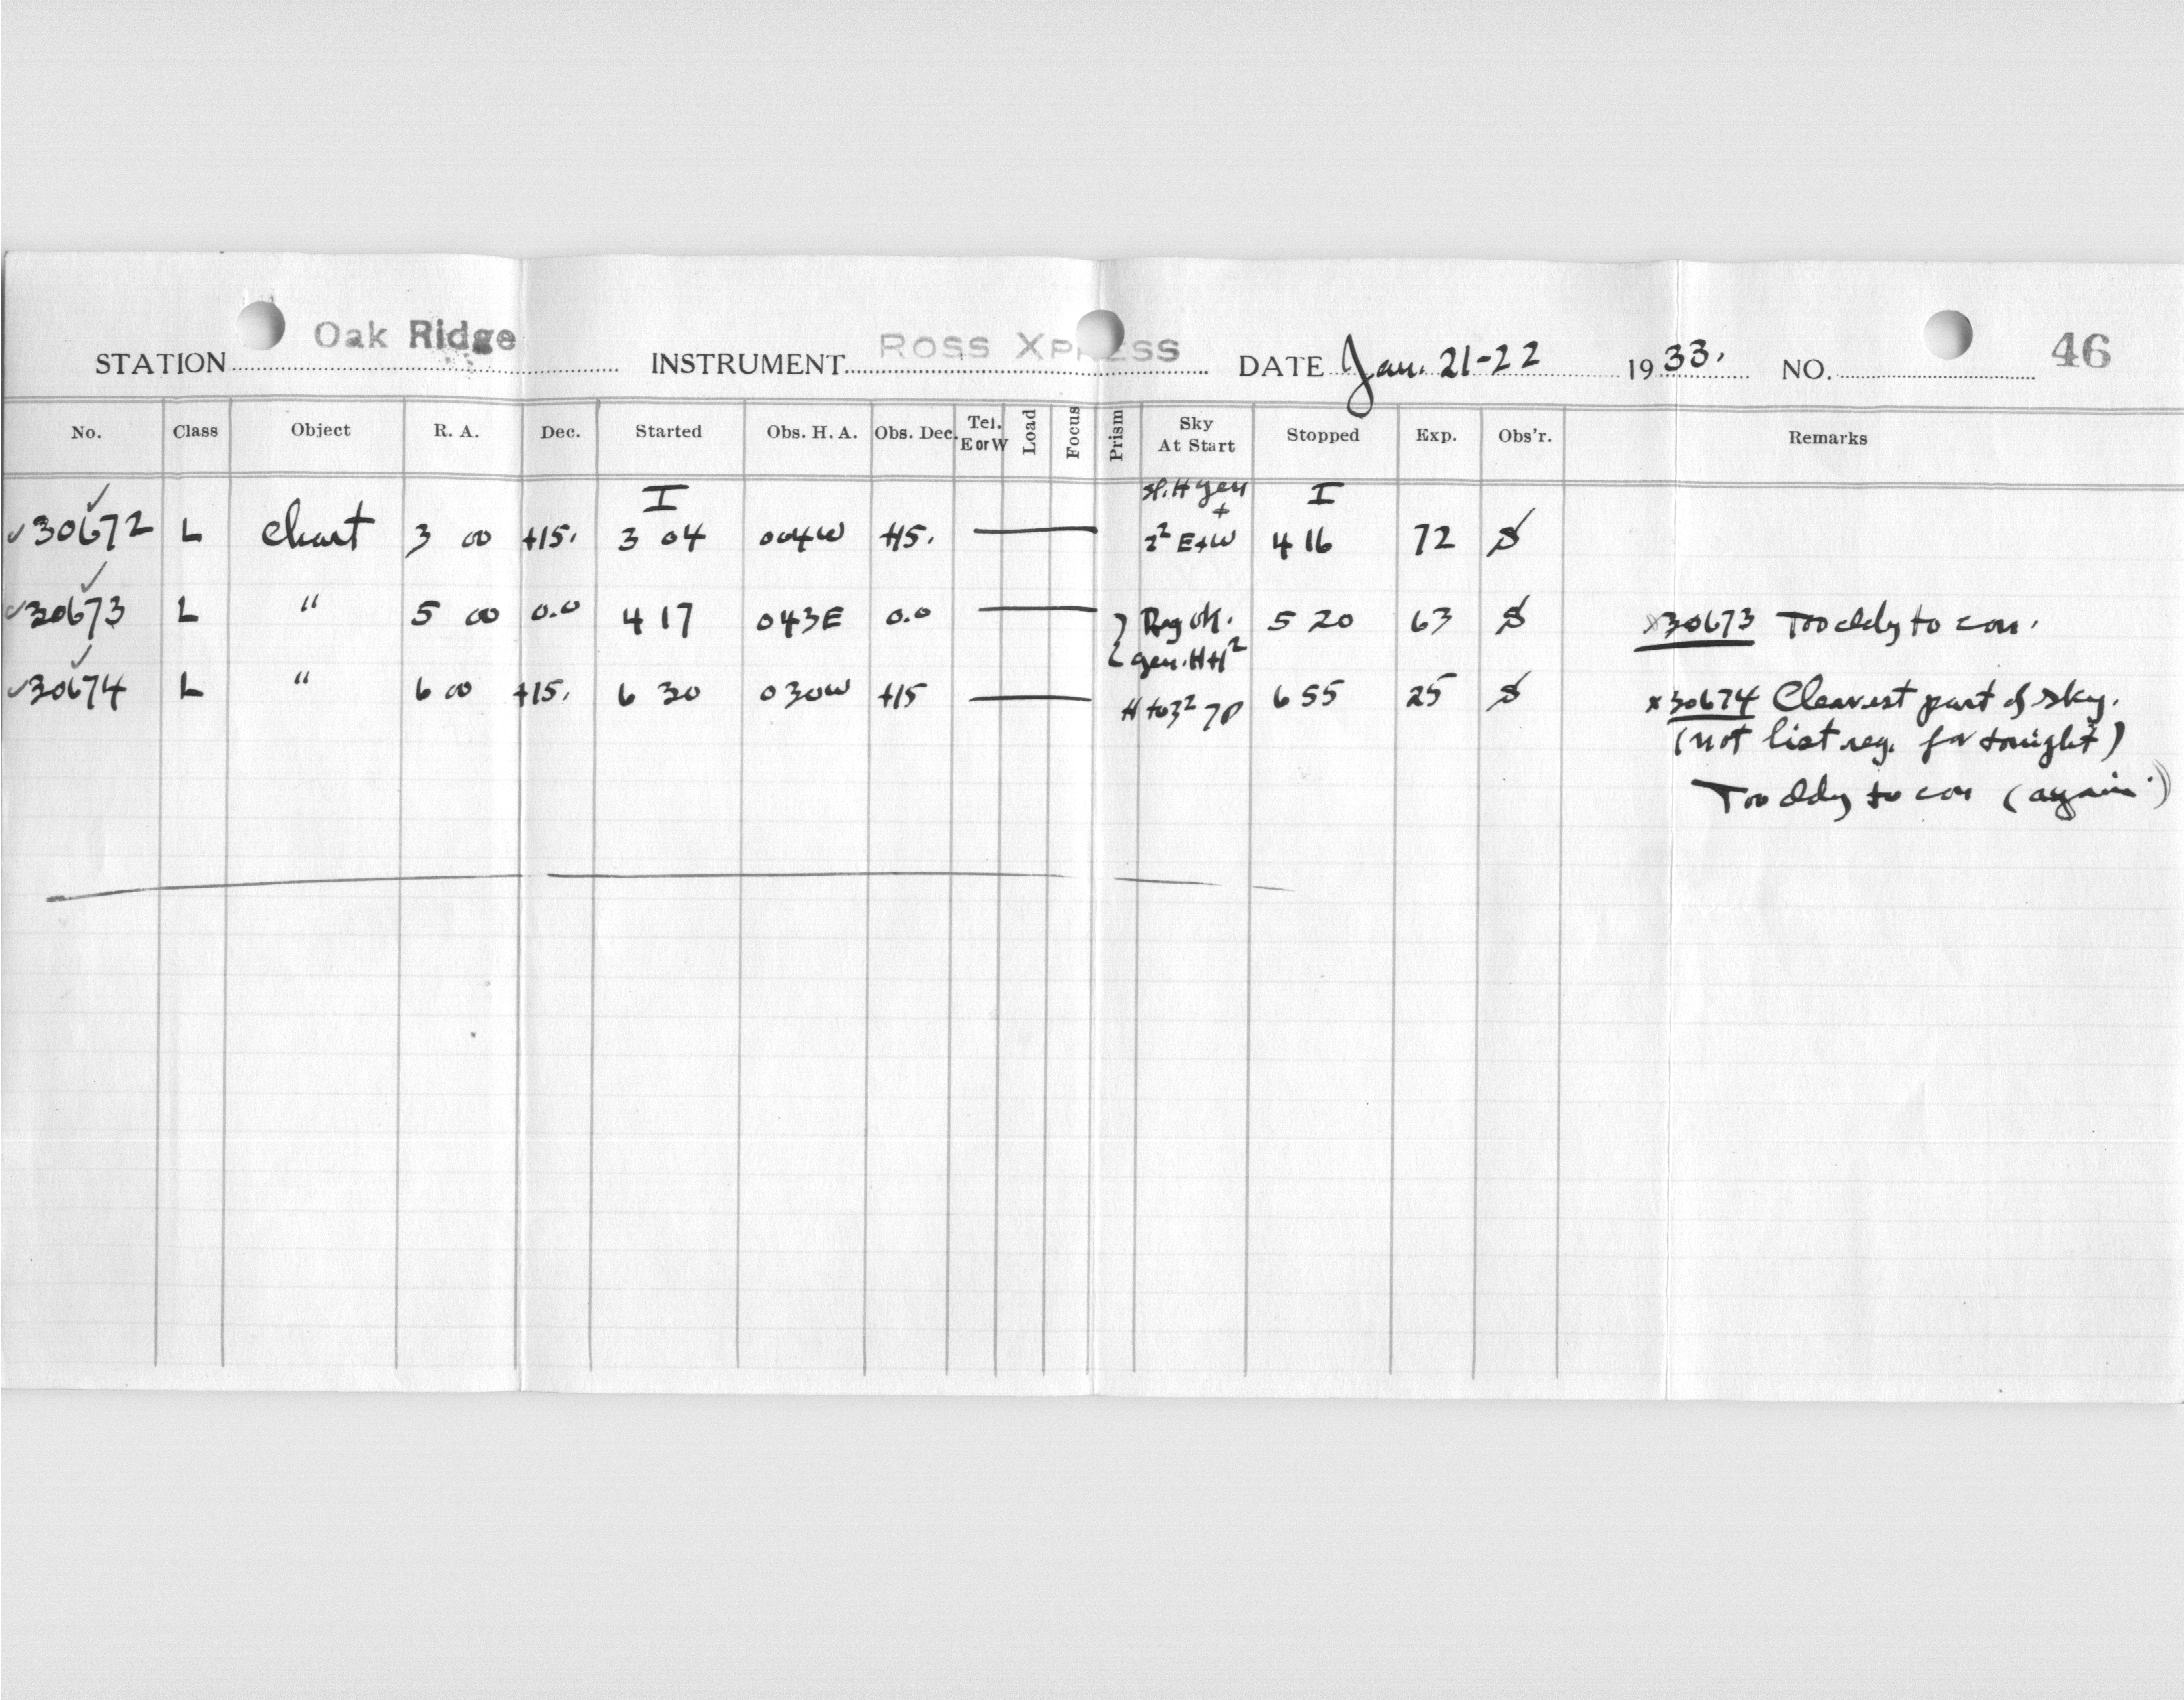 Oak Ridge Ross Xpress 46
STATION INSTRUMENT DATE Jan. 21-22 1933. NO.
No. Class Object R. A. Dec. Started Obs. H. A. Obs. Dec. Tel. E or W Load Focus Prism Sky At Start Stopped Exp. Obs'r. Remarks
I sl. H gen + I
30672 L Chart 3 00 +15. 3 04 004W +15. 2² E+W 4 16 72
30673 L " 5 00 0.0 4 17 043E 0.0 5 20 63 x30673 Too cldy to con.
gen. H+H²
30674 L " 6 00 +15. 6 30 030W +15 H to 3² 6 55 25 x30674 Clearest part of sky.
(not list reg. for tonight)
Too cldy to con (again.)